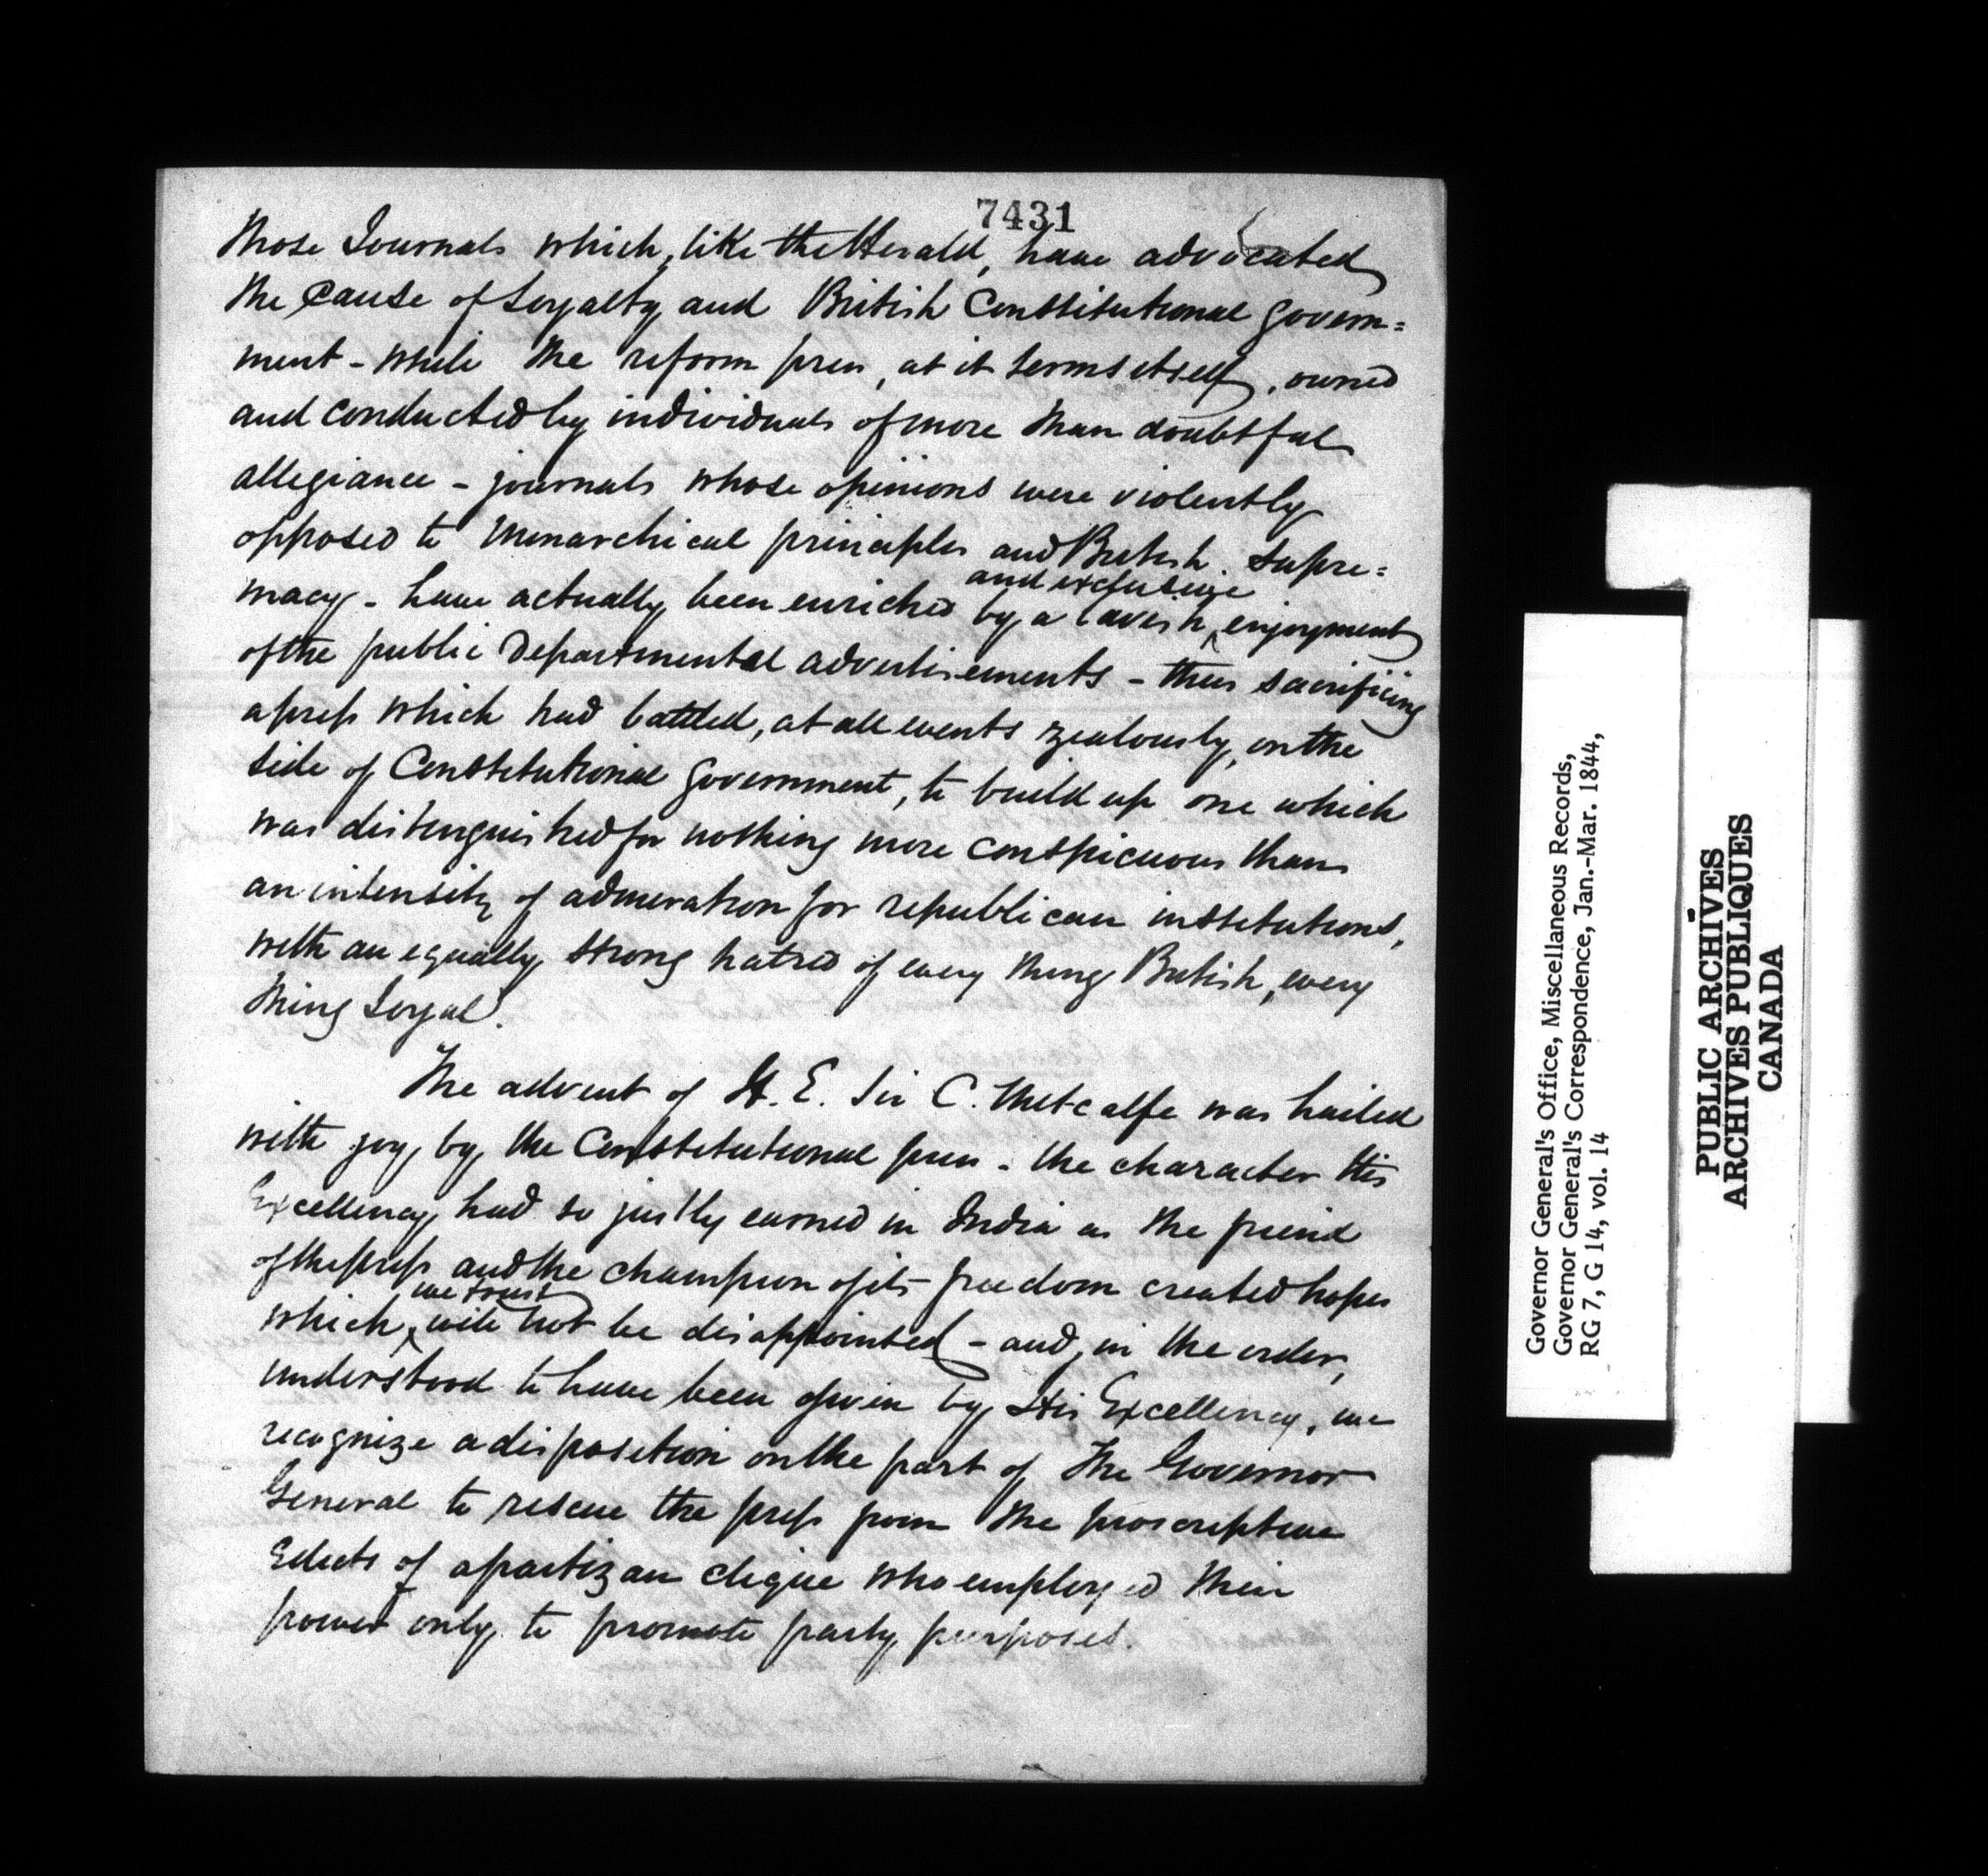 7431
those Journals which, like the Herald, have advocated
the cause of Loyalty and British Constitutional Govern=
ment - while the reform press, as it terms itself, owned
and conducted by individuals of more than doubtful
allegiance - journals whose opinions were violently
opposed to Monarchical principles and British Supre=
and exclusive
macy - have actually been enriched by a lavish enjoyment
of the public Departmental advertisements - thus sacrificing
a press which had battled, at all events zealously, on the
side of Constitutional Government, to build up one which
was distinguished for nothing more conspicuous than
an intensity of admiration for republican institutions,
with an equally strong hatred of every thing British, every
thing Loyal.
The advent of H. E. Sir C. Metcalfe was hailed
with joy by the Constitutional press - the character His
Excellency had so justly earned in India as the friend
of the press and the champion of its freedom created hopes
we trust
which will not be disappointed - and, in the order,
understood to have been given by His Excellency, we
recognize a disposition on the part of The Governor
General to rescue the press from the proscriptive
Edicts of a partizan clique who employed their
power only to promote party purposes.
Governor General's Office, Miscellaneous Records,
Governor General's Correspondence, Jan.-Mar. 1844,
RG 7, G 14, vol. 14
PUBLIC ARCHIVES
ARCHIVES PUBLIQUES
CANADA